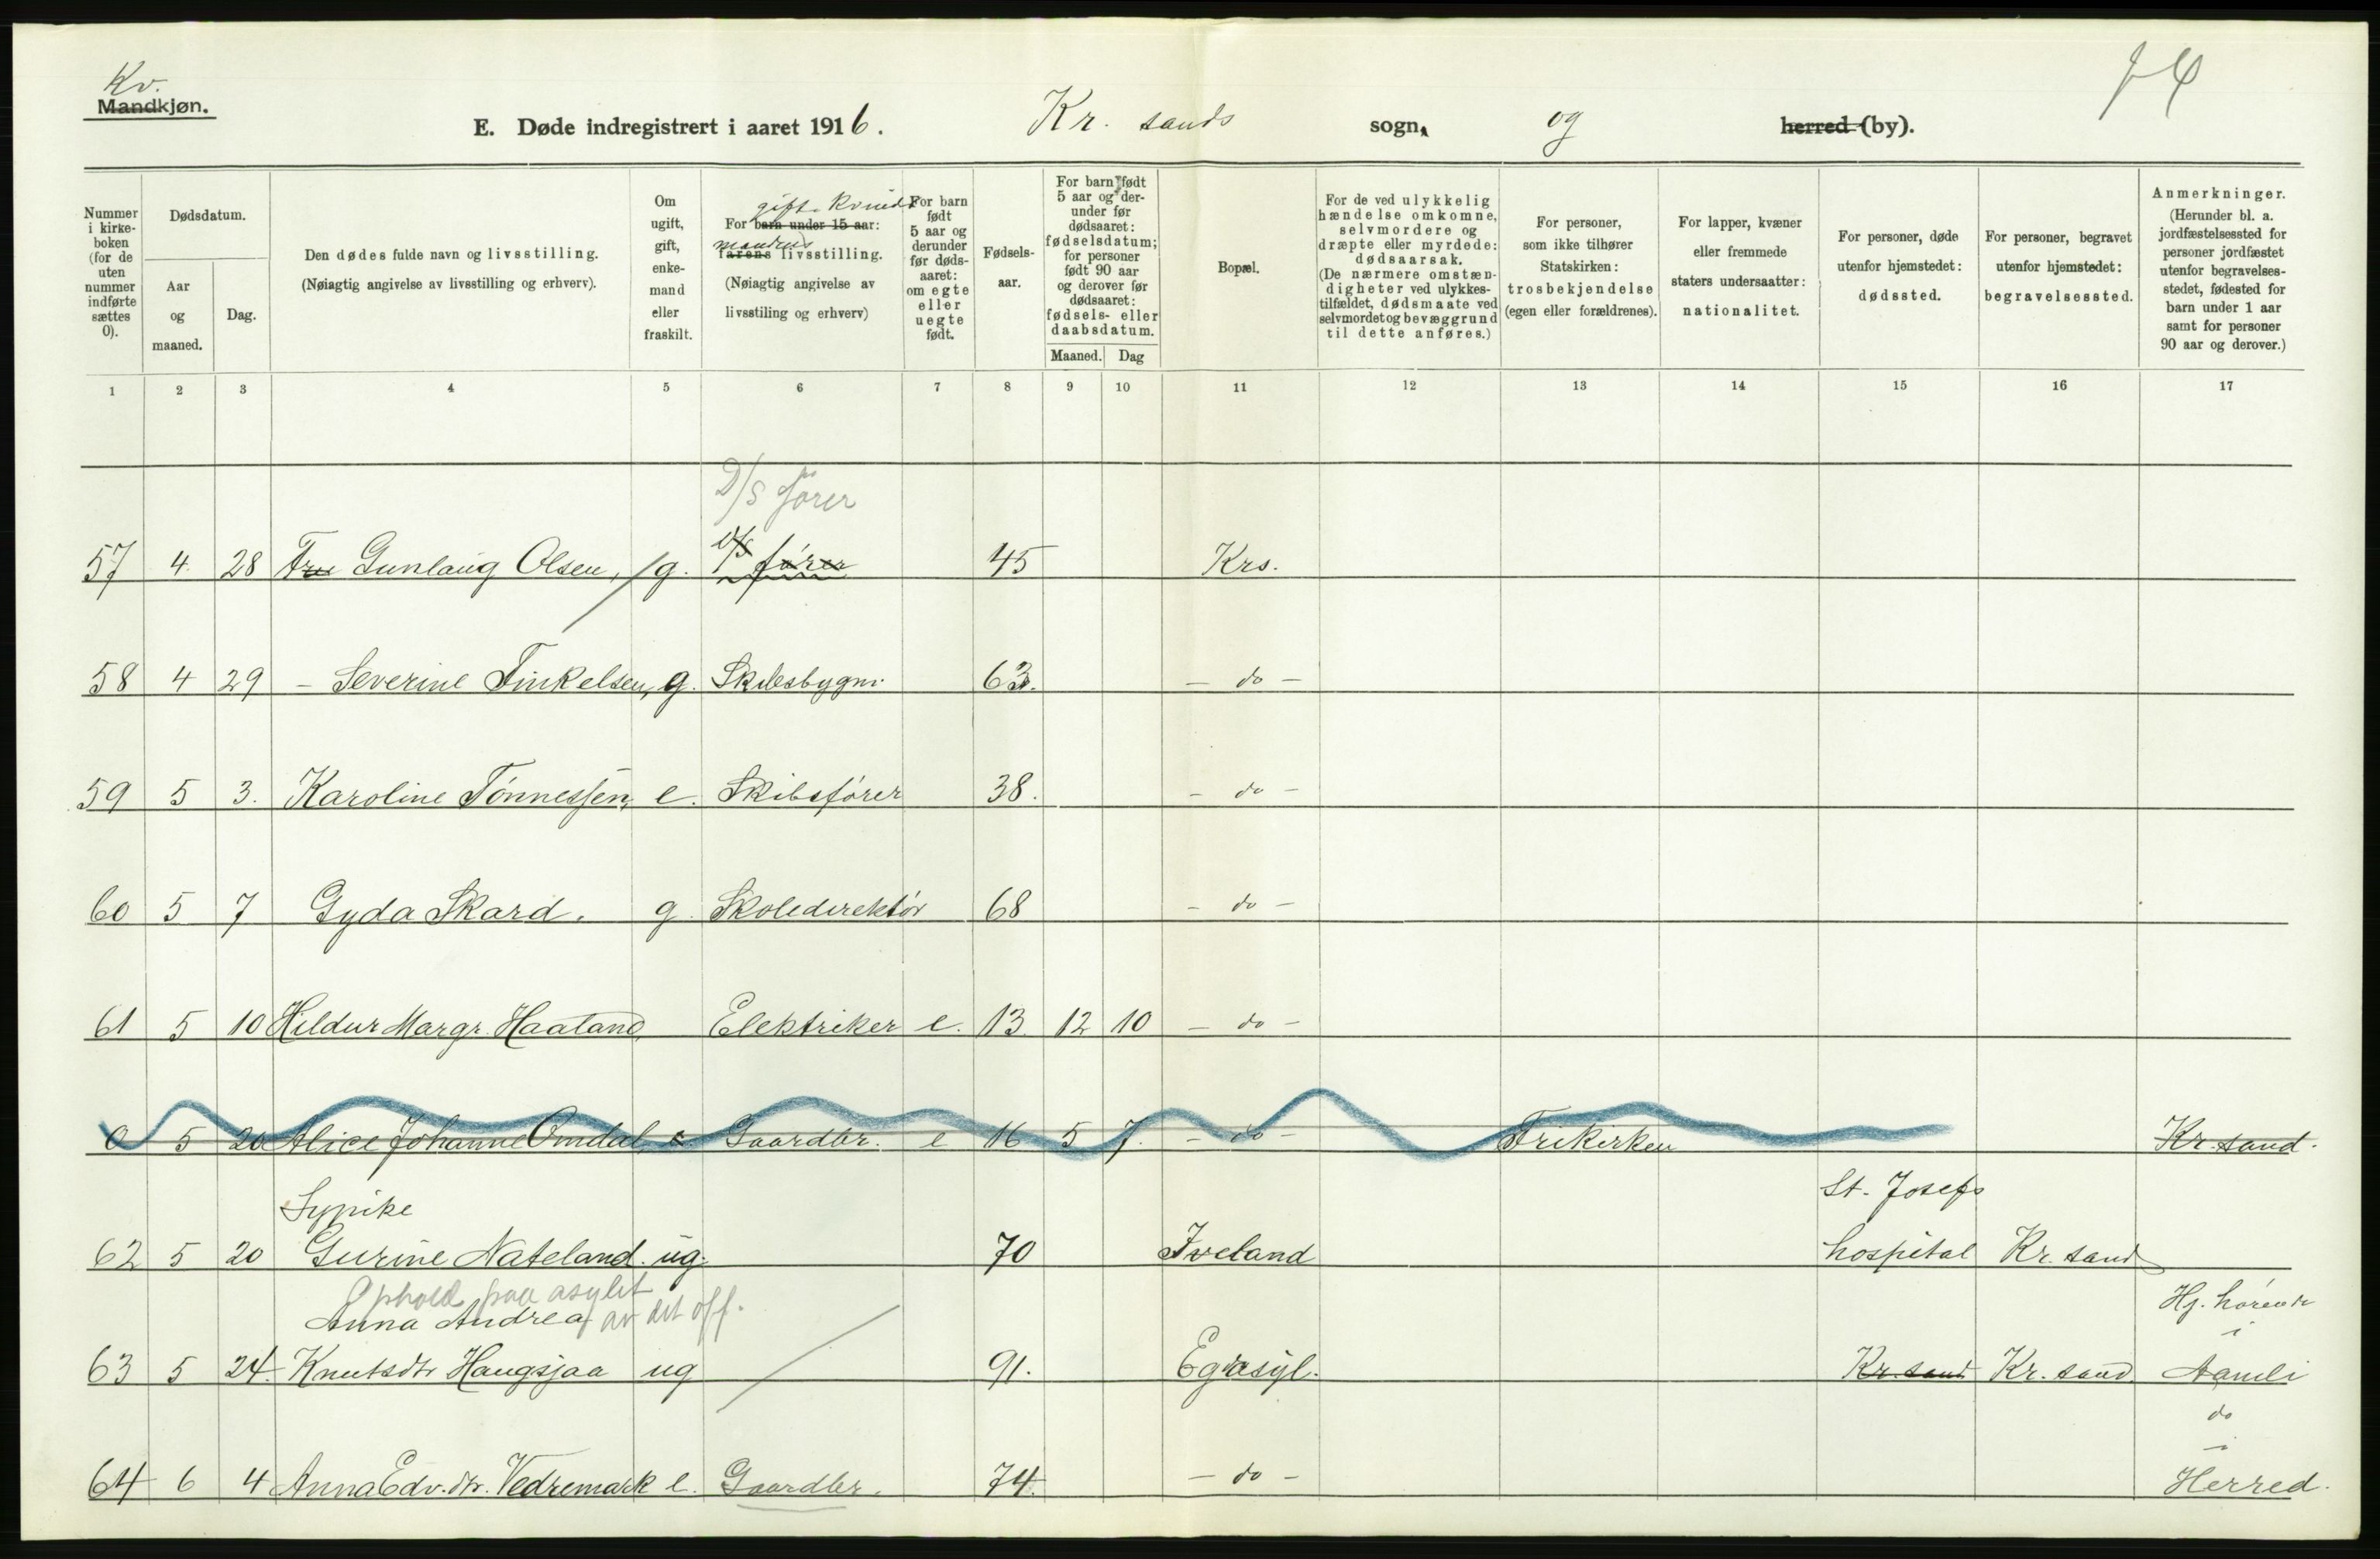 Kv.
Mandkjøn.
E. Døde indregistrert i aaret 1916. Kr. sands sogn, og herred (by).
Nummer i kirkeboken (for de uten nummer indførte sættes 0).
Dødsdatum.
Aar og maaned.
Dag.
Den dødes fulde navn og livsstilling.
(Nøiagtig angivelse av livsstilling og erhverv).
Om ugift, gift, enkemand eller fraskilt.
gift. Kvinde
For barn under 15 aar:
mandens
farens livsstilling.
(Nøiagtig angivelse av livsstiling og erhverv)
For barn født 5 aar og derunder før dødsaaret: om egte eller uegte født.
Fødselsaar.
For barn født 5 aar og derunder før dødsaaret: fødselsdatum; for personer født 90 aar og derover før dødsaaret: fødsels- eller daabsdatum.
Maaned. Dag
Bopæl.
For de ved ulykkelig hændelse omkomne, selvmordere og dræpte eller myrdede: dødsaarsak.
(De nærmere omstændigheter ved ulykkestilfældet, dødsmaate ved selvmordet og bevæggrund til dette anføres.)
For personer, som ikke tilhører Statskirken: trosbekjendelse (egen eller forældrenes).
For lapper, kvæner eller fremmede staters undersaatter: nationalitet.
For personer, døde utenfor hjemstedet: dødssted.
For personer, begravet utenfor hjemstedet: begravelsessted.
Anmerkninger.
(Herunder bl. a. jordfæstelsessted for personer jordfæstet utenfor begravelsesstedet, fødested for barn under 1 aar samt for personer 90 aar og derover.)
1 2 3 4 5 6 7 8 9 10 11 12 13 14 15 16 17
D/S fører
57 4. 28 Fru Gunlaug Olsen, g. D/S fører 45 Krs.
58 4 29 - Severine Finkelsen, g. Skibsbygm. 63. - do -
59 5 3. Karoline Tønnessen, e. Skibsfører 38. - do -
60 5 7 Gyda Skard. g. Skoledirektør 68 - do -
61 5 10 Hildur Margr. Haaland, Elektriker e. 13 12 10 - do -
0 5 20 Alice Johanne Omdal, Gaardbr. e 16 5 7. - do - Frikirken Kr. sand.
Sypike St. Josefs
62 5 20 Gurine Nateland ug. 70 Iveland hospital Kr. sand
Ophold paa asylet
Anna Andrea av det off. Hj. hørende
i
63 5 24. Knutsdtr Haugsjaa ug 91. Egrasyl. Kr. sand Kr. sand. Aamli
do
i
64 6 4 Anna Edv. dtr. Vedremark e. Gaardbr. 74. - do - Herred.